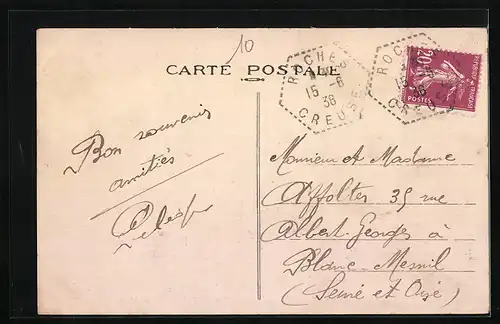 10
CARTE POSTALE
ROCHES
15 -6
36
CREUSE
ROCHES
15 -6
36
CREUSE
20c
Bon souvenir
amitiés
Monsieur et Madame
Affolter 35 rue
Albert Georges à
Blanc-Mesnil
(Seine et Oise)